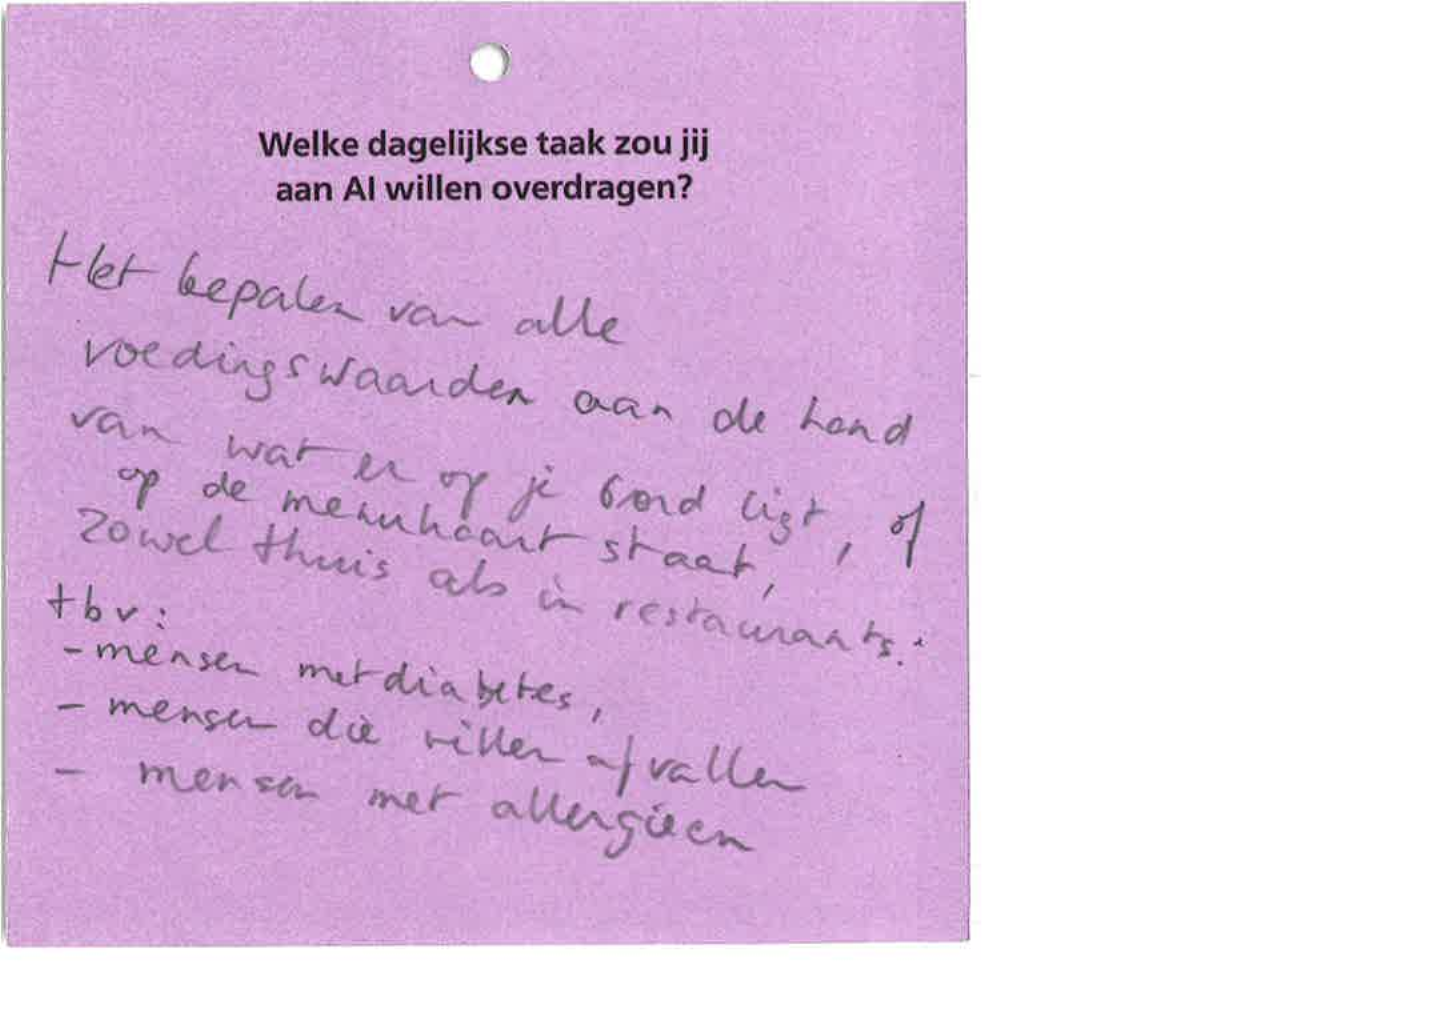 Welke dagelijkse taak zou jij
aan AI willen overdragen?
Het bepalen van alle
voedingswaarden aan de hand
van wat er op je bord ligt, of
op de menukaart staat,
zowel thuis als in restaurants.
tbv:
- mensen met diabetes,
- mensen die willen afvallen
- mensen met allergieën